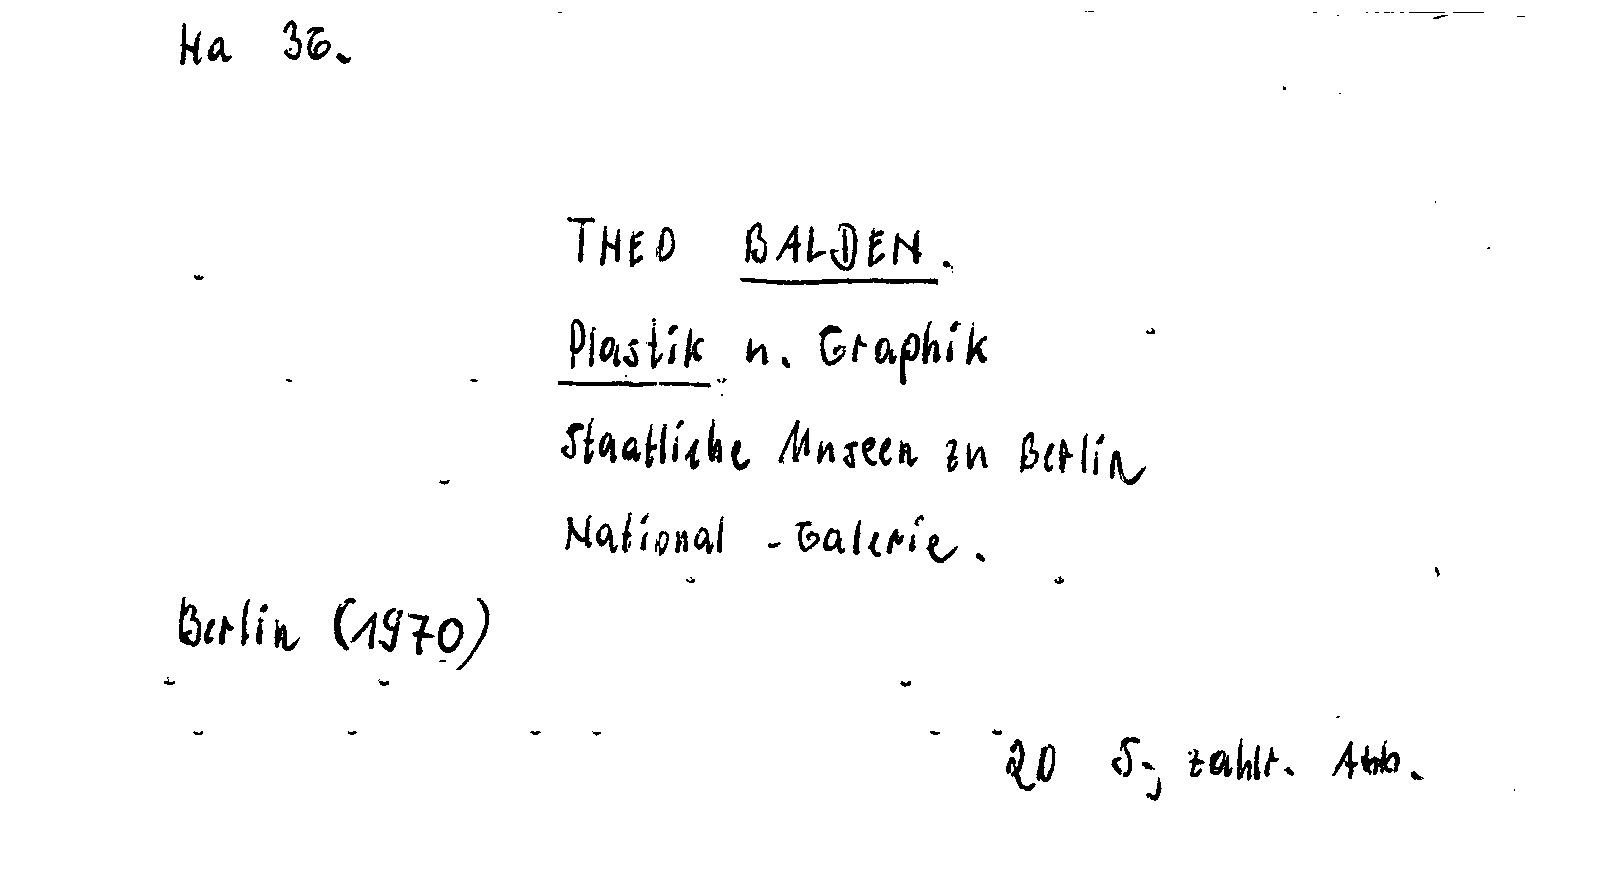 Ha 36.
THEO BALDEN.
Plastik u. Graphik
Staatliche Museen zu Berlin
National-Galerie.
Berlin (1970)
20 S., zahlr. Abb.